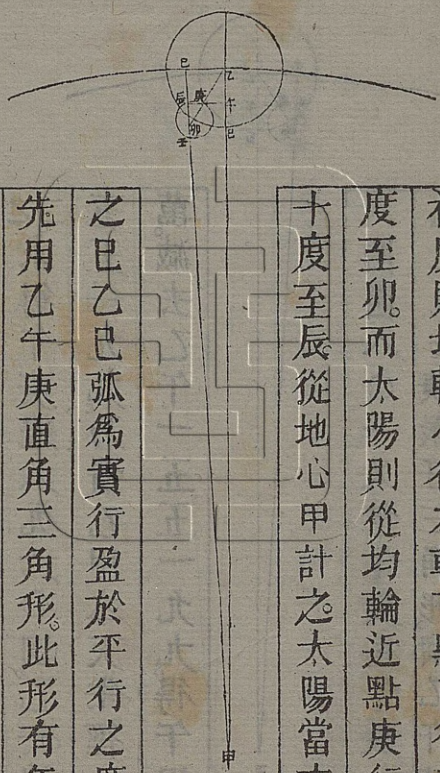 巳
乙
辰
庚
午
卯
巳
壬
甲
度至卯。而太陽則從均輪近點庚行
十度至辰。從地心甲計之。太陽當
之巳乙巳弧爲實行盈於平行之度
先用乙午庚直角三角形。此形有